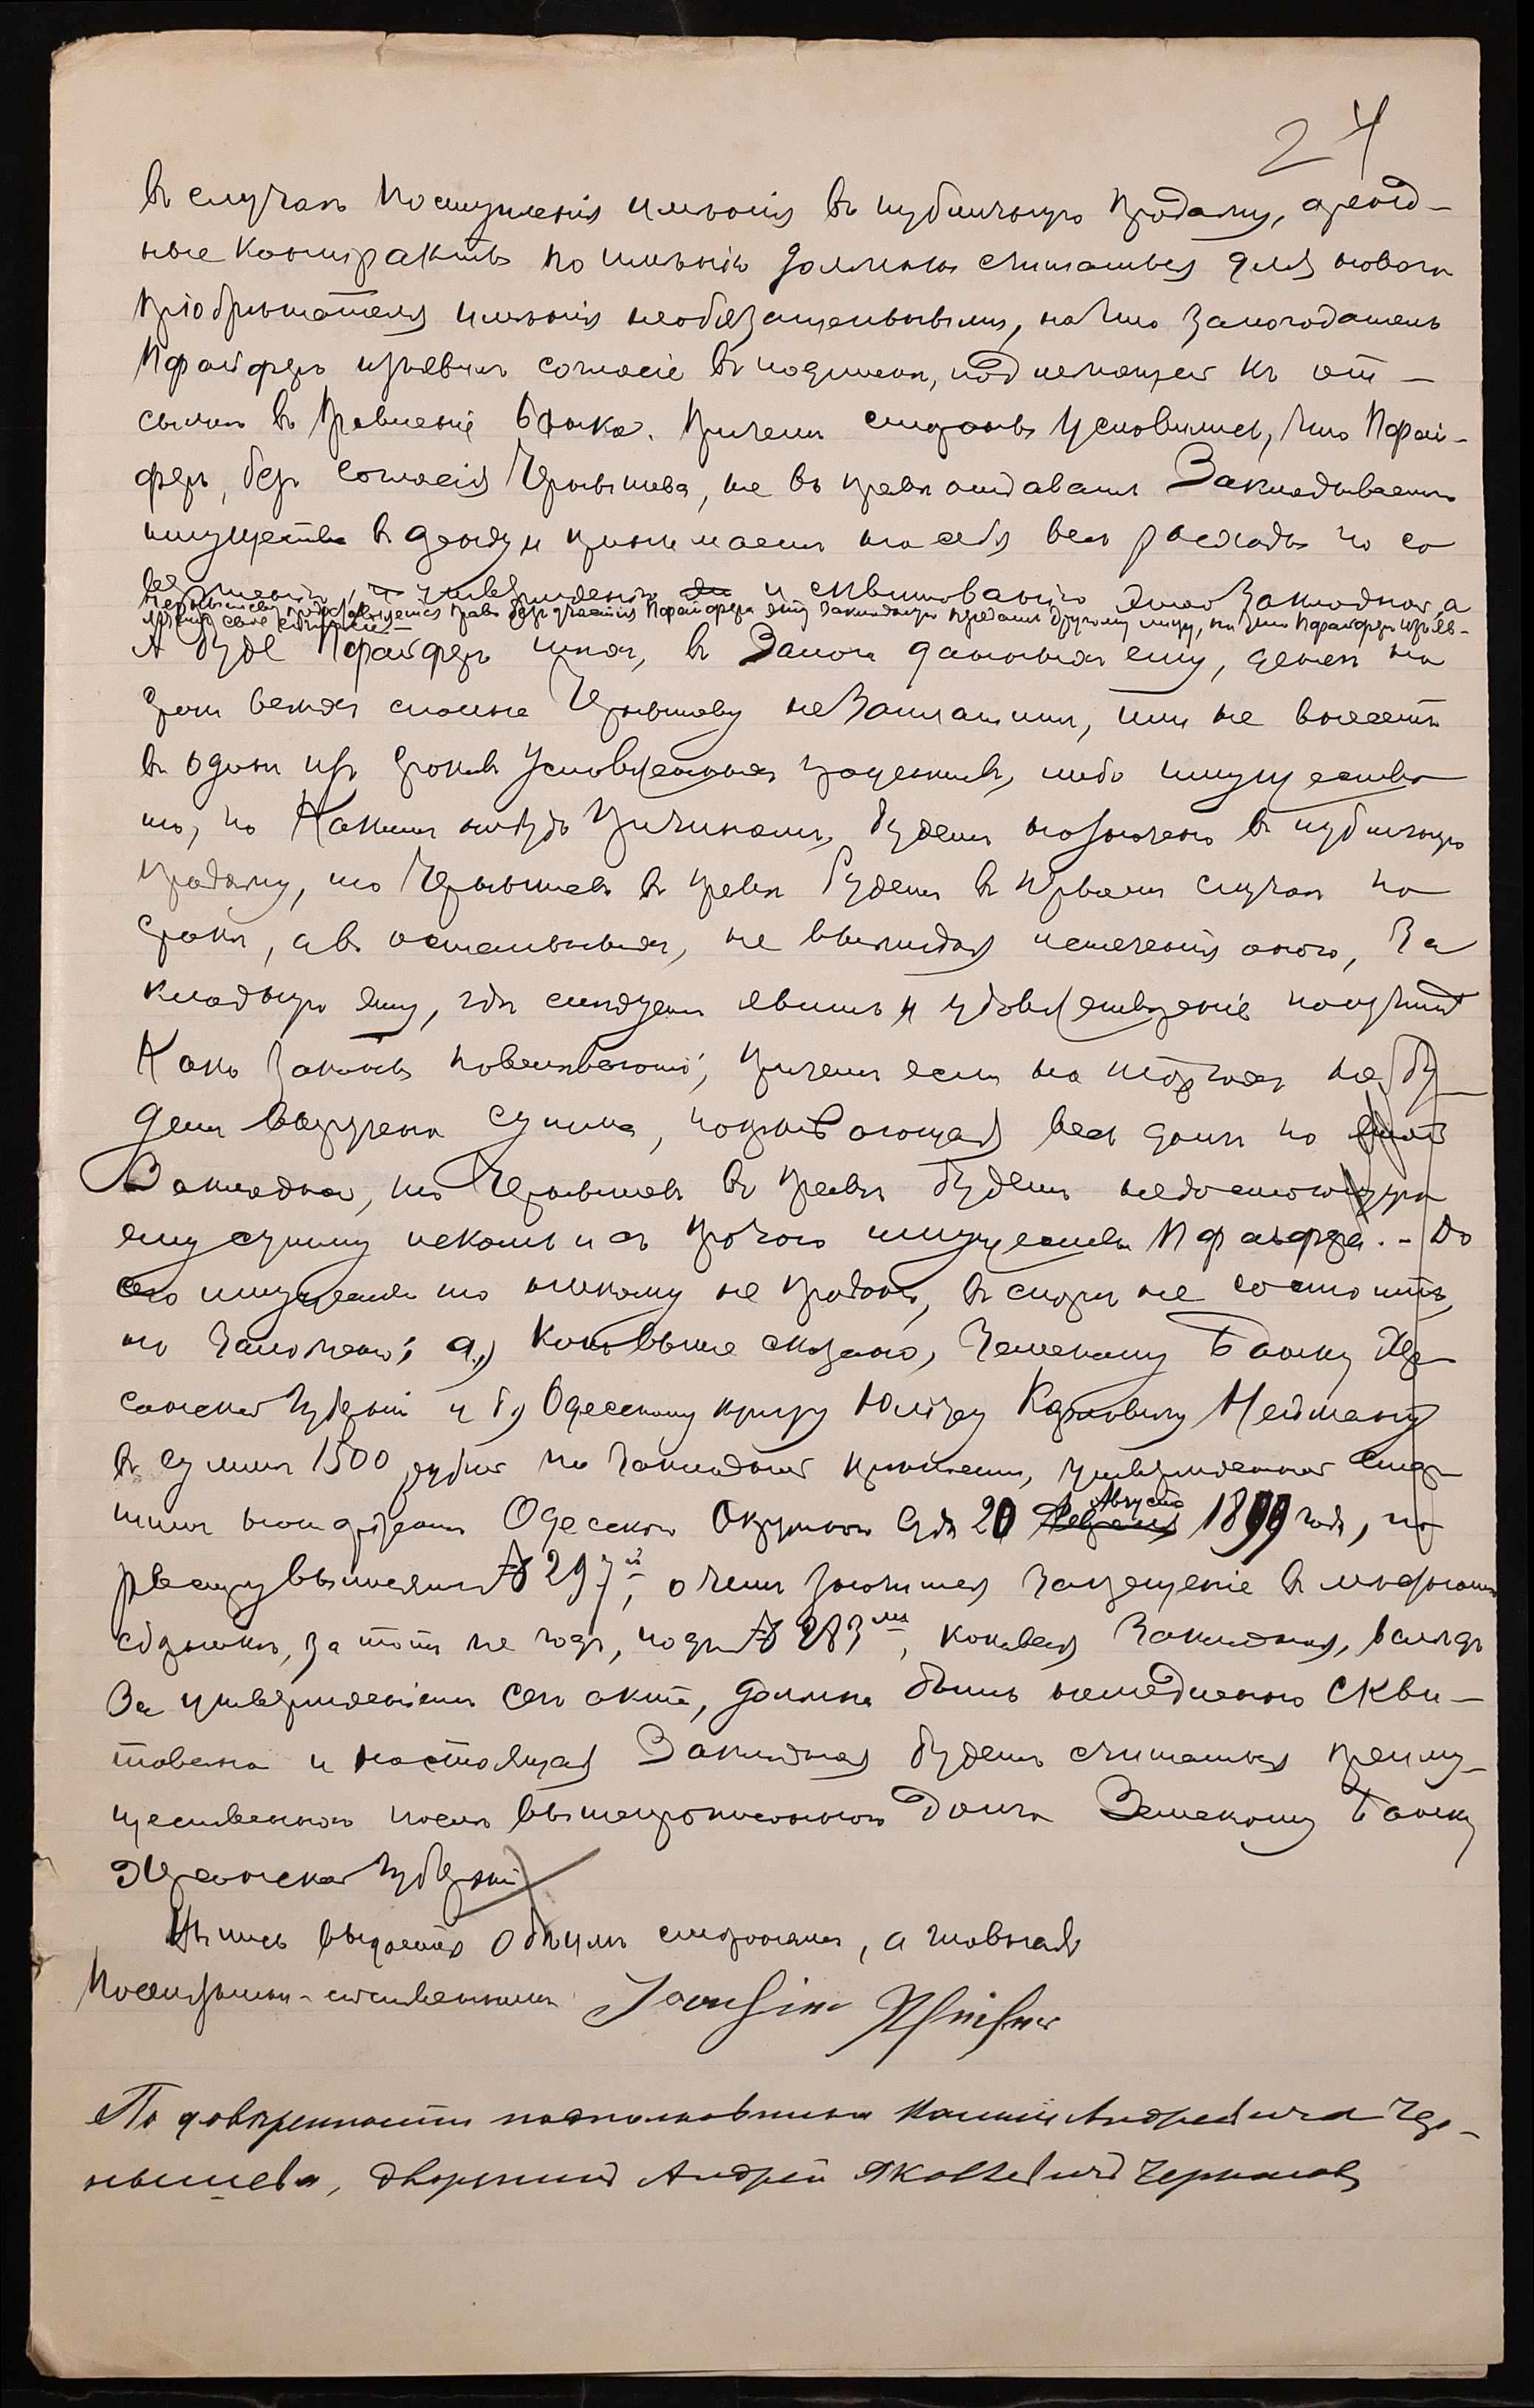 24
въ случаѣ поступленія имѣнія въ публичную продажу, аренд-
ные контракты по имѣнію должны считаться для новаго
пріобрѣтателя имѣнія необязательными, на что залогодатель
Пфайферъ изъявилъ согласіе въ подпискѣ, подлежащей къ от-
сылкѣ въ Правленіе банка. Причемъ стороны условились, что Пфай-
феръ, безъ согласія Чернышева, не въ правѣ отдавать Закладываемое
имущество въ аренду и принимаетъ на себя всѣ расходы по со
вершенію, утвержденію и сквитованію этой Закладной, а
Чернышеву предоставляется право безъ участія Пфайфера эту закладную предать другому лицу, на что Пфайферъ изъяв-
ляетъ свое согласіе.—
А буде Пфайферъ тѣхъ, въ Заемъ данныхъ ему, денегъ на
срокъ всѣхъ сполна Чернышеву не Заплатитъ, или не внесетъ
въ одинъ изъ сроковъ условленныхъ процентовъ, либо имущество
то, по какимъ нибудь причинамъ, будетъ назначено въ публичную
продажу, то Чернышевъ въ правѣ будетъ въ первомъ случаѣ по
срокѣ, а въ остальныхъ, не выжидая истеченія онаго, За
кладную эту, гдѣ слѣдуетъ явить и удовлетвореніе получить
какъ Законы повелѣваютъ; причемъ если на торгахъ не бу
детъ выручена сумма, покрывающая весь долгъ по этой
Закладной, то Чернышевъ въ правѣ будетъ недостающую
ему сумму искать и съ прочаго имущества Пфайфера. - До
сего имущество то никому не продано, въ спорѣ не состоитъ,
но заложено; а) какъ выше сказано, Земскому Банку Хер
сонской Губерніи и б) Одесскому купцу Юлію Карловичу Нейману
въ суммѣ 1500 рублей по закладной крѣпости, утвержденной Стар
шимъ нотаріусомъ Одесскаго Окружнаго Суда 20 Августа 1899 года, по
реестру крѣпостныхъ № 297й, о чемъ значится запрещеніе въ
сборникѣ, за тотъ же годъ, подъ № 283мъ, каковая Закладная, вслѣдъ
За утвержденіемъ сего акта, должна быть немедленно скви-
тована и настоящая Закладная будетъ считаться преиму-
щественною послѣ вышепрописаннаго долга Земскому Банку
Херсонской Губерніи
Выпись выдать обѣимъ сторонамъ, а главная
Поселянинъ-собственникъ Joachim Pfeifer
По довѣренности подполковника Андреевича Чер-
нышева, дворянинъ Андрей Яковлевичъ Чернышевъ